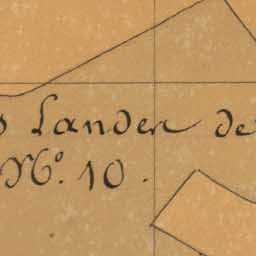 Landen de
No. 10.